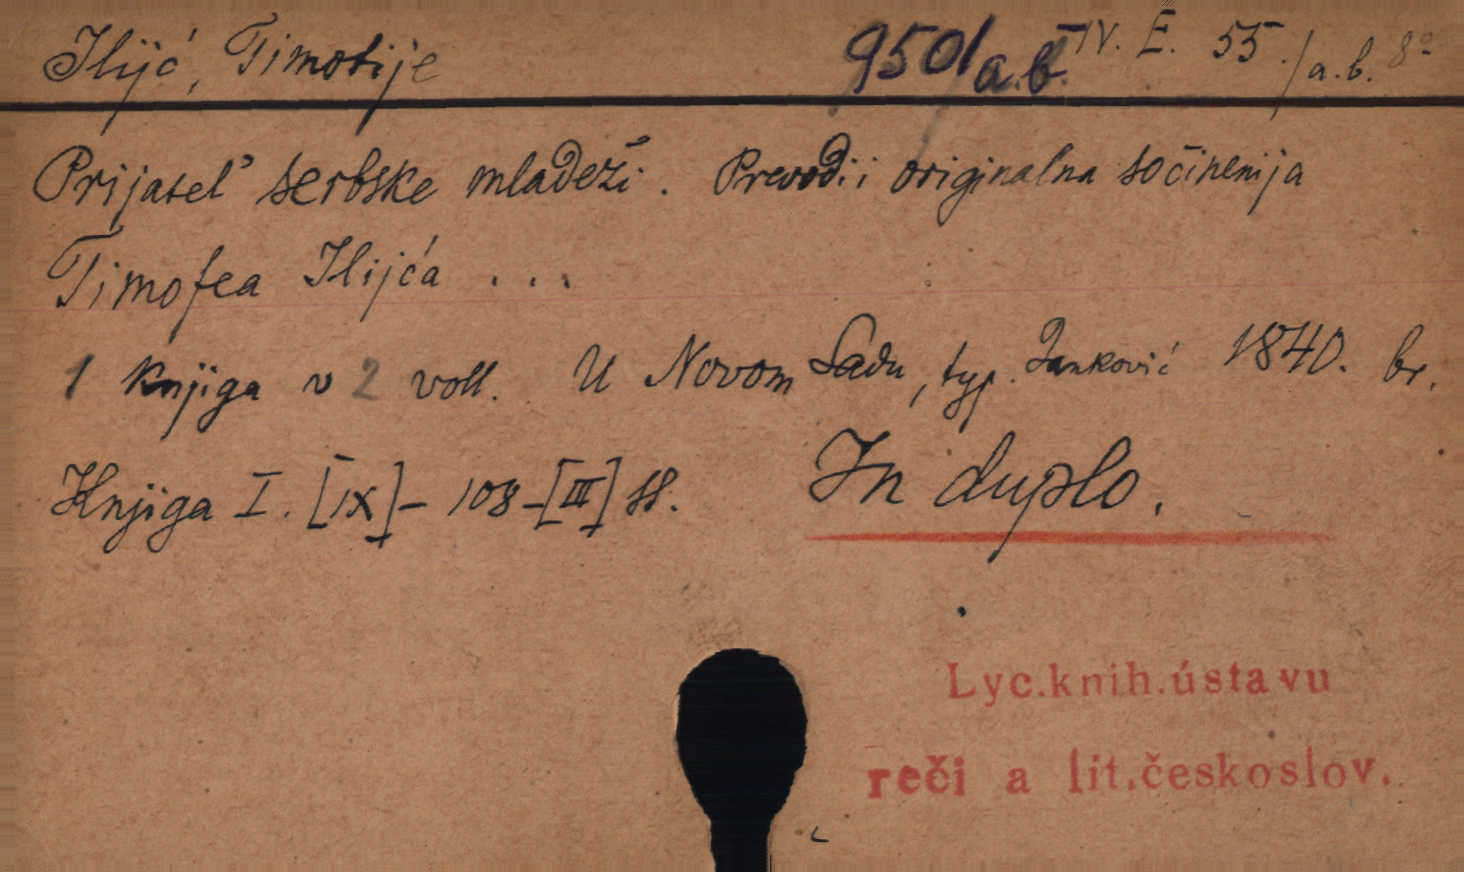 Ilijć, Timotije 950/a.b. IV. E. 55./a.b. 8°
Prijatel' serbske mladeži. Prevodi i originalna sočinenija
Timofea Ilijća ...
1 Knjiga v 2 voll. U Novom Sadu, typ. Janković 1840. br.
Knjiga I. [IX]- 108-[III] ss. In duplo.
Lyc.knih.ústavu
reči a lit.českoslov.